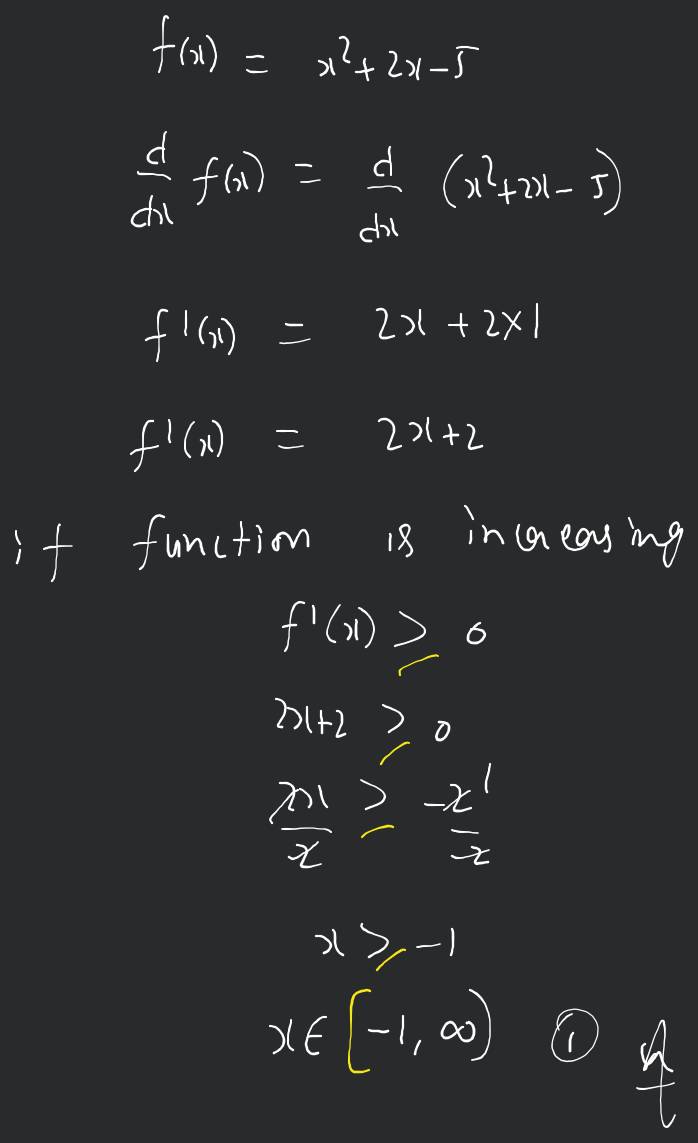 f(x) = x²+2x-5
d/dx f(x) = d/dx (x²+2x-5)
f'(x) = 2x + 2×1
f'(x) = 2x+2
if function is increasing
f'(x) ≥ 0
2x+2 ≥ 0
2x/2 ≥ -2/2 1
x ≥ -1
x∈[-1, ∞) ①